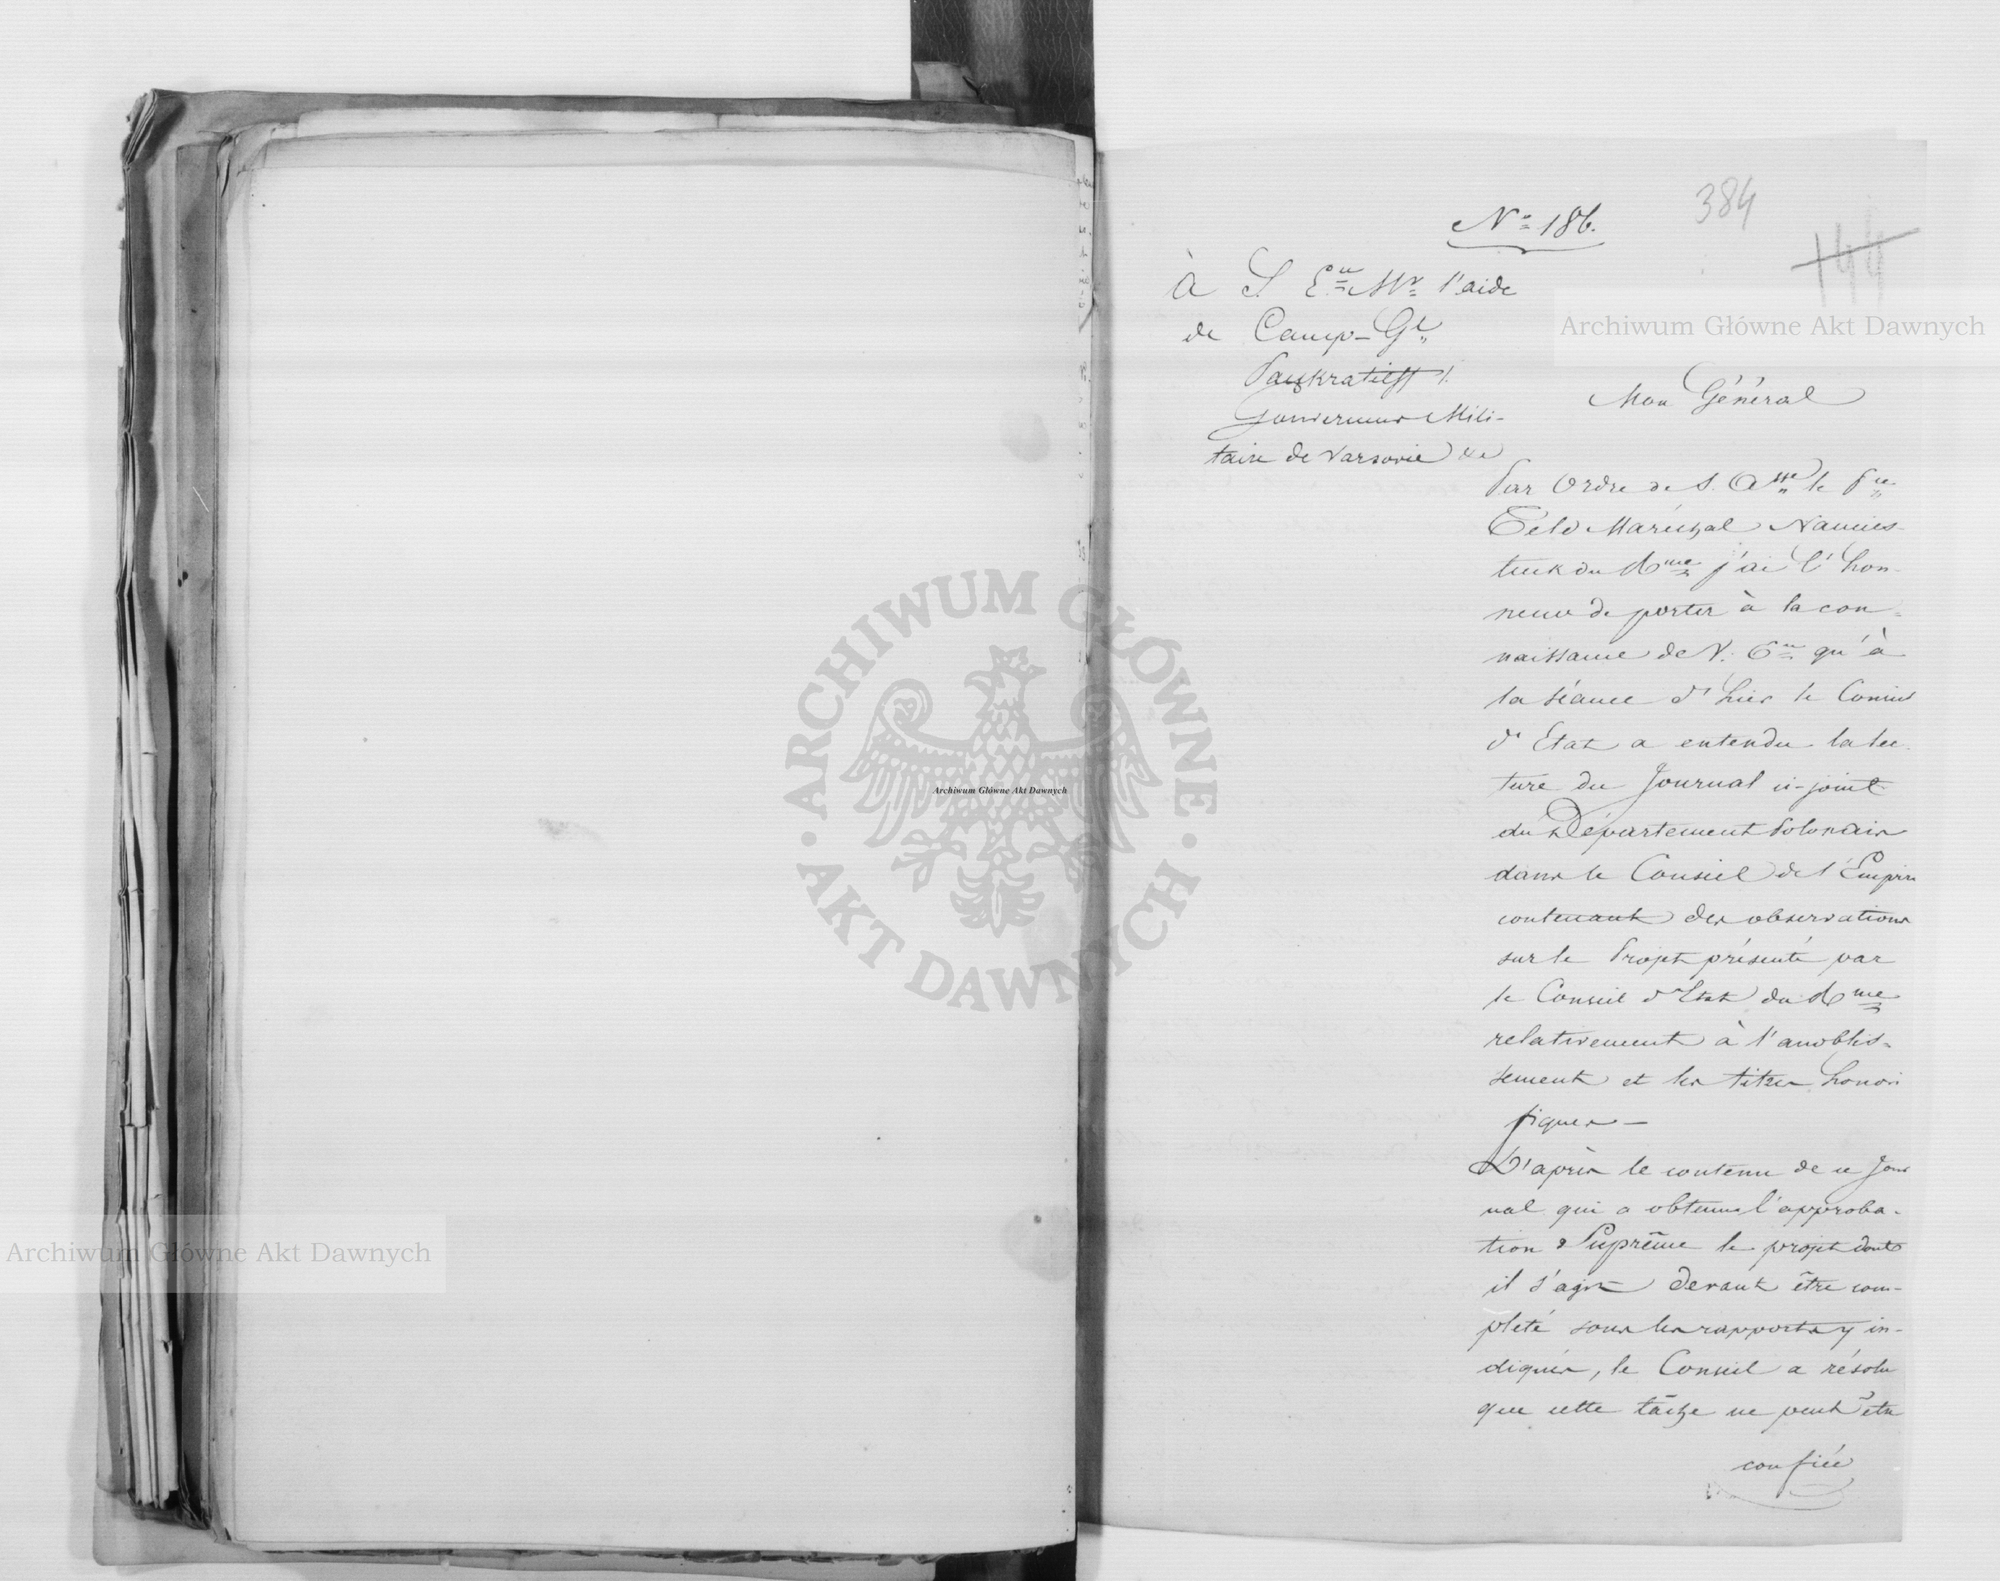 384
144
Nº 186.
à S. Ece Mr l'aide
de Camp-Gl
Pankratieff 1.
Gouverneur Mili-
taire de Varsovie &c
Mon Général
Par Ordre de S. Asse le Pce
Feld Maréchal Namies-
tnik du Rme j'ai l'hon-
neur de porter à la con-
naissance de V. Ece qu'à
la séance d'hier le Conseil
d'Etat a entendu la lec-
ture du Journal ci-joint
du Département Polonais
dans le Conseil de l'Empire
contenant des observations
sur le Projet présenté par
le Conseil d'Etat du Rme
relativement à l'anoblis-
sement et les titres honori
fiques —
D'après le contenu de ce Jour
nal qui a obtenu l'approba-
tion Suprême le projet dont
il s'agit devant être com-
pleté sous les rapports y in-
diqués, le Conseil a résolu
que cette tâche ne peut être
confiée
Archiwum Główne Akt Dawnych
ARCHIWUM GŁÓWNE · AKT DAWNYCH ·
Archiwum Główne Akt Dawnych
Archiwum Główne Akt Dawnych